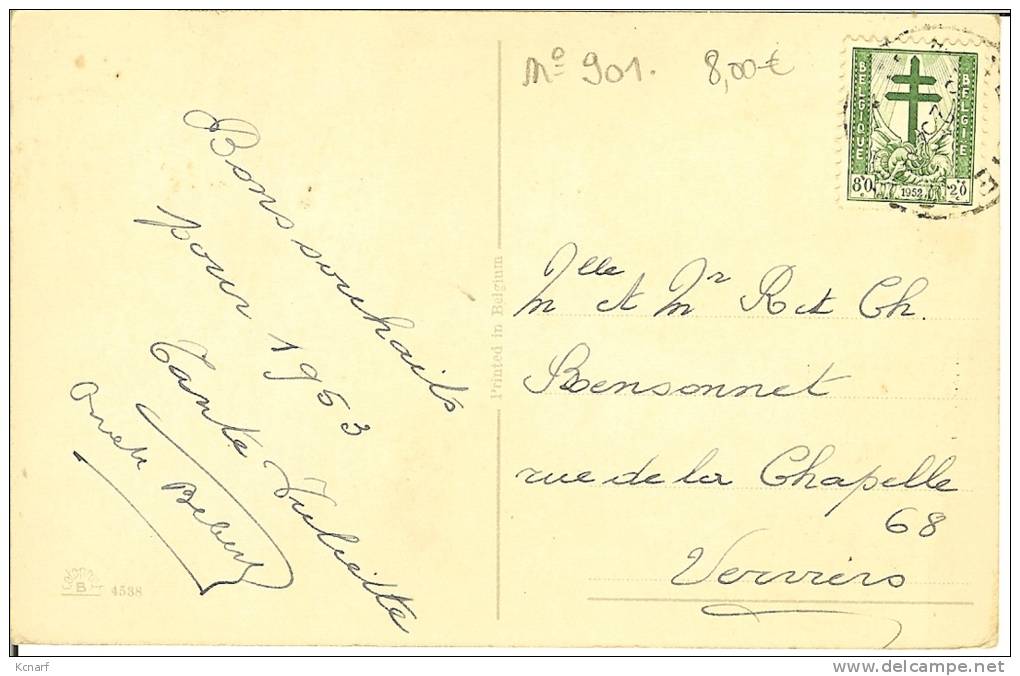 Nº 901. 8,00 €
BELGIQUE
BELGIE
80 1952 20
Bons souhaits
pour 1953
Tante Juliette
Printed in Belgium
Mlle et Mr R et Ch.
Bensonnet
rue de la Chapelle
68
Verviers
B 4538
Kcnarf
www.delcampe.net